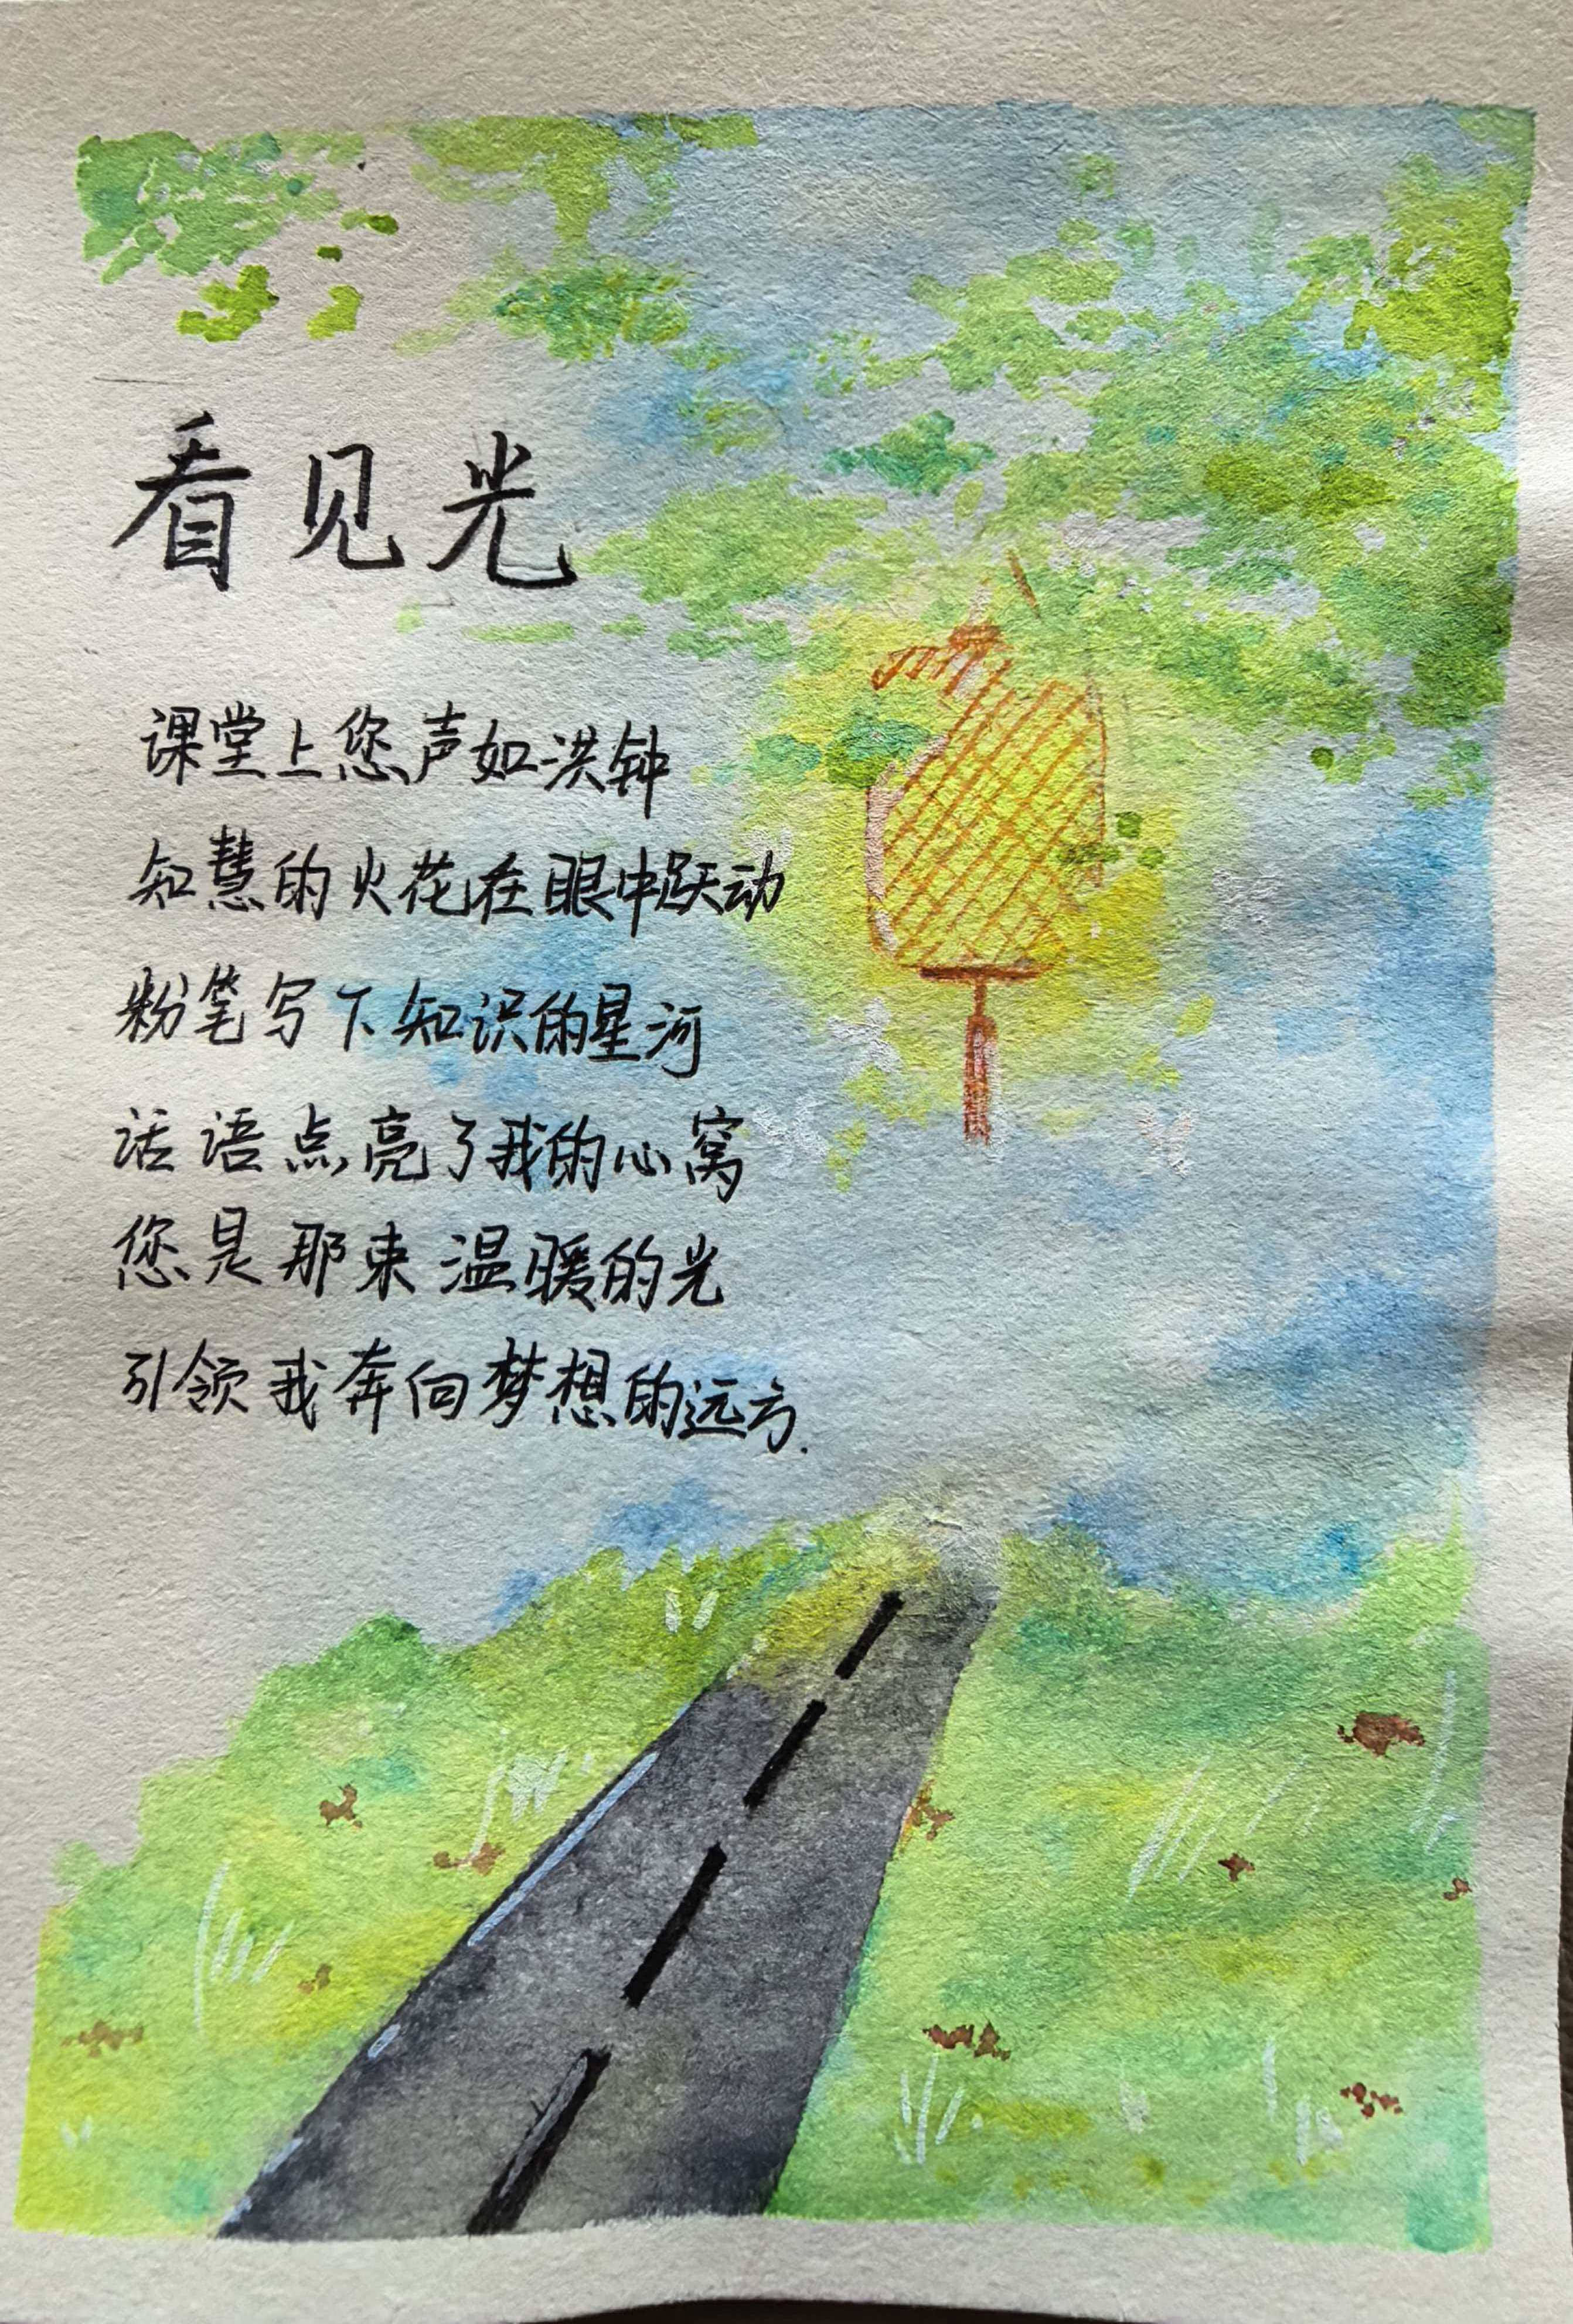 看见光
课堂上您声如洪钟
知慧的火花在眼中跃动
粉笔写下知识的星河
话语点亮了我的心窝
您是那束温暖的光
引领我奔向梦想的远方.